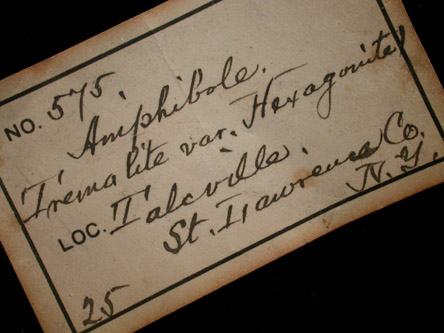 NO. 575.
Amphibole.
Tremalite var. Hexagonite
LOC. Talcville.
St. Lawrence Co.
N.Y.
25